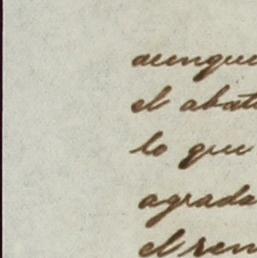 aunque
el abat
lo que
agrada
el ren